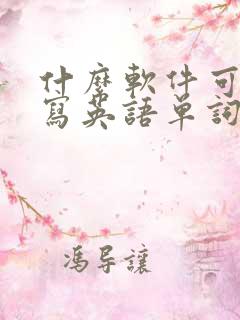 什麼軟件可
寫英語單詞
馮导讓